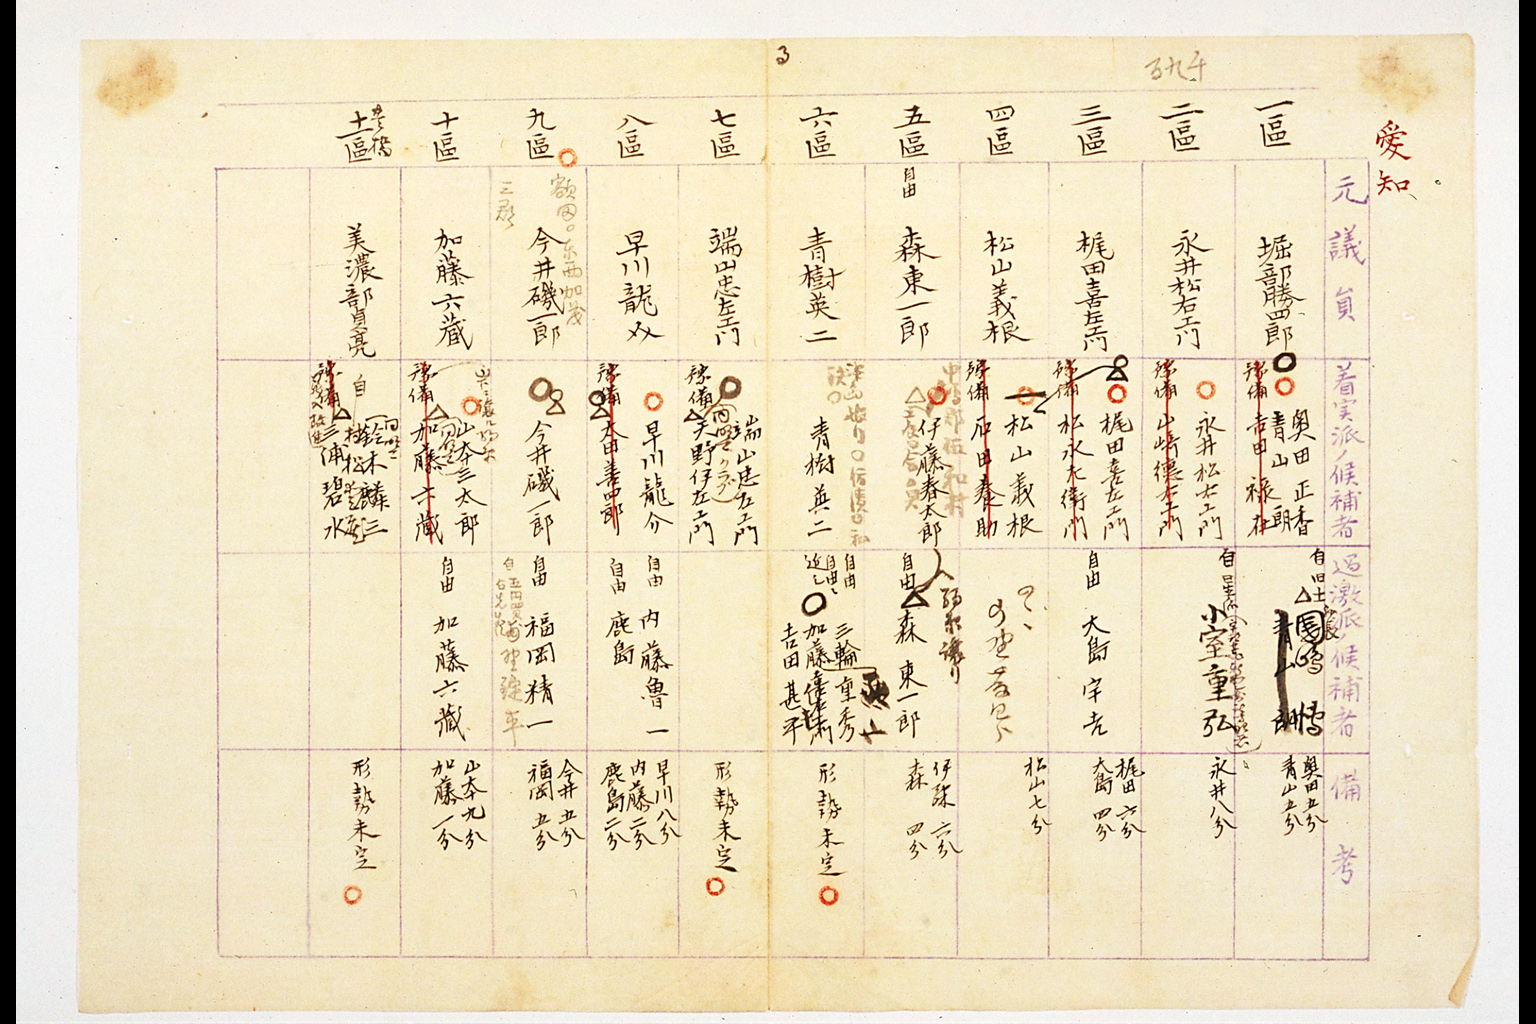 愛知
元議員
着実派ノ候補者
過激派ノ候補者
備考
一區
堀部勝四郎
奥田正香
青山朗
豫備 吉田禄在
自
青山朗
奥田五分
青山五分
二區
永井松右エ門
永井松右エ門
豫備 山崎德左エ門
自
小室重弘
永井八分
三區
梶田喜左エ門
梶田喜左エ門
豫備 松永左衛門
自由 大島宇吉
梶田六分
大島四分
四區
松山義根
松山義根
豫備 石田泰助
松山七分
五區
自由 森東一郎
伊藤春太郎
自由 森東一郎
伊藤六分
森四分
六區
青樹英二
青樹英二
自由
三輪重秀
加藤
吉田甚平
形勢未定
七區
端山忠左エ門
端山忠左エ門
豫備 天野伊左エ門
形勢未定
八區
早川龍介
早川龍介
豫備 太田善四郎
自由 内藤魯一
自由 鹿島
早川八分
内藤二分
鹿島二分
九區
額田 東西加茂
今井磯一郎
今井磯一郎
自由 福岡精一
今井五分
福岡五分
十區
加藤六蔵
山本三太郎
豫備 加藤六蔵
自由 加藤六蔵
山本九分
加藤一分
十一區
豊橋
美濃部貞亮
自
鈴木麟三
村松
豫備 三浦碧水
形勢未定